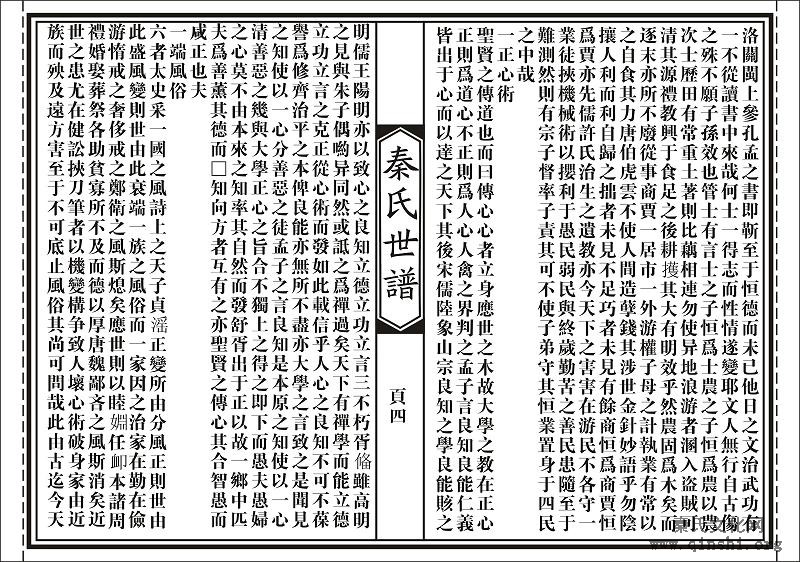 洛關閩上參孔孟之書即靳至于恒德而未已他日之文治武功有
一不從讀書中來哉何士一得志而性情遂變耶文人無行自古傷
之殊不願子孫效也管士有言士之子恒爲士農之子恒爲農以農
次士歷田有常重土著則比藕相連勿使异地浪游者溷入盗賊可
清其源禮教興于食足之後耕擭其大有明效乎然農固爲木矣而
逐末亦所不廢從事商賈一居市一外游權子母之計執業有常以
之自食其力唐伯虎雲不使人間造孽錢其涉世金針妙語乎勿陰
攘人利而利自歸之拙者未見不足巧者未見有餘商恒爲商賈恒
爲賈亦先儒許氏治生之遺教亦今天下之害害在游民不各守一
業徒挾機械術以攖利于愚民弱民與終歲勤苦之善民患隨至于
難測然則有宗子督率子責其可不使子弟守其恒業置身于四民
之中哉
一正心術
聖賢之傳道也而曰傳心心者立身應世之木故大學之教在正心
正則爲道心不正則爲人心人禽之界判之孟子言良知良能仁義
皆出于心而以達之天下其後宋儒陸象山宗良知之學良能賅之
秦氏世譜
頁四
明儒王陽明亦以致心之良知立德立功立言三不朽胥俻雖高明
之見與朱子偶喲异同然或詆之爲禪過矣天下有禪學而能立德
立功立言之克正從心術而發如此載信乎人心之良知不可不葆
譽爲修齊治平之本俾良能亦無所不盡亦大學之言致之是聞見
之知使以一心分善惡之徒孟子之言良知是本原之知使以一心
清善惡之幾與大學正心之旨合不獨上之得之即下而愚夫愚婦
之心莫不由本來之知率其自然而發舒胥出于正以故一鄉中匹
夫爲善薰其德而□知向方者互有之亦聖賢之傳心其合智愚而
咸正也夫
一端風俗
六者太史采一國之風詩上之天子貞滛正變所由分風正則世由
此盛風變則世由此衰端一族之風俗而一家因之治家在勤在儉
游惰戒之奢侈戒之鄭衛之風斯熄矣應世則以睦婣任卹本諸周
禮婚娶葬祭各助貧寡所不及而德以厚唐魏鄙吝之風斯消矣近
世之患尤在健訟挾刀筆者以機變構争致人壞心術破身家由近
族而殃及遠方害至于不可底止風俗其尚可問哉此由古迄今天
秦氏文化网
www.qinshi.org